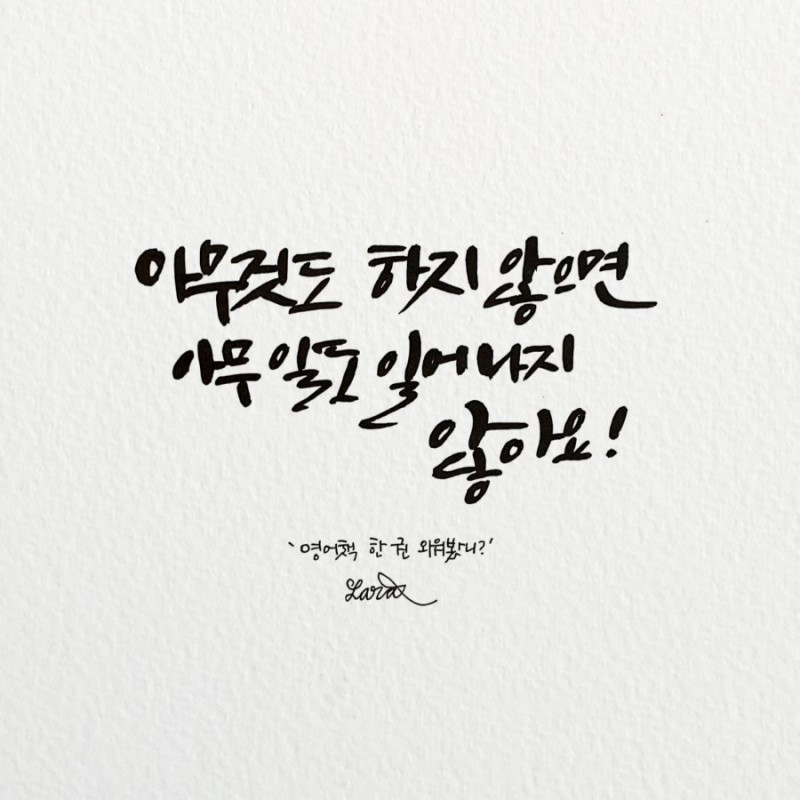 아무것도 하지 않으면
아무 일도 일어나지
않아요!
'영어책 한 권 외워봤니?'
Lara